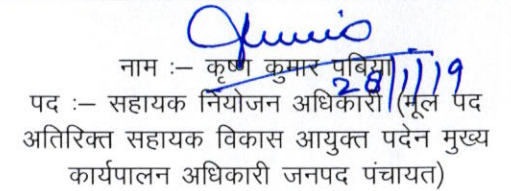 नाम :– कृष्ण कुमार पबिया
28/1/19
पद :– सहायक नियोजन अधिकारी (मूल पद
अतिरिक्त सहायक विकास आयुक्त पदेन मुख्य
कार्यपालन अधिकारी जनपद पंचायत)